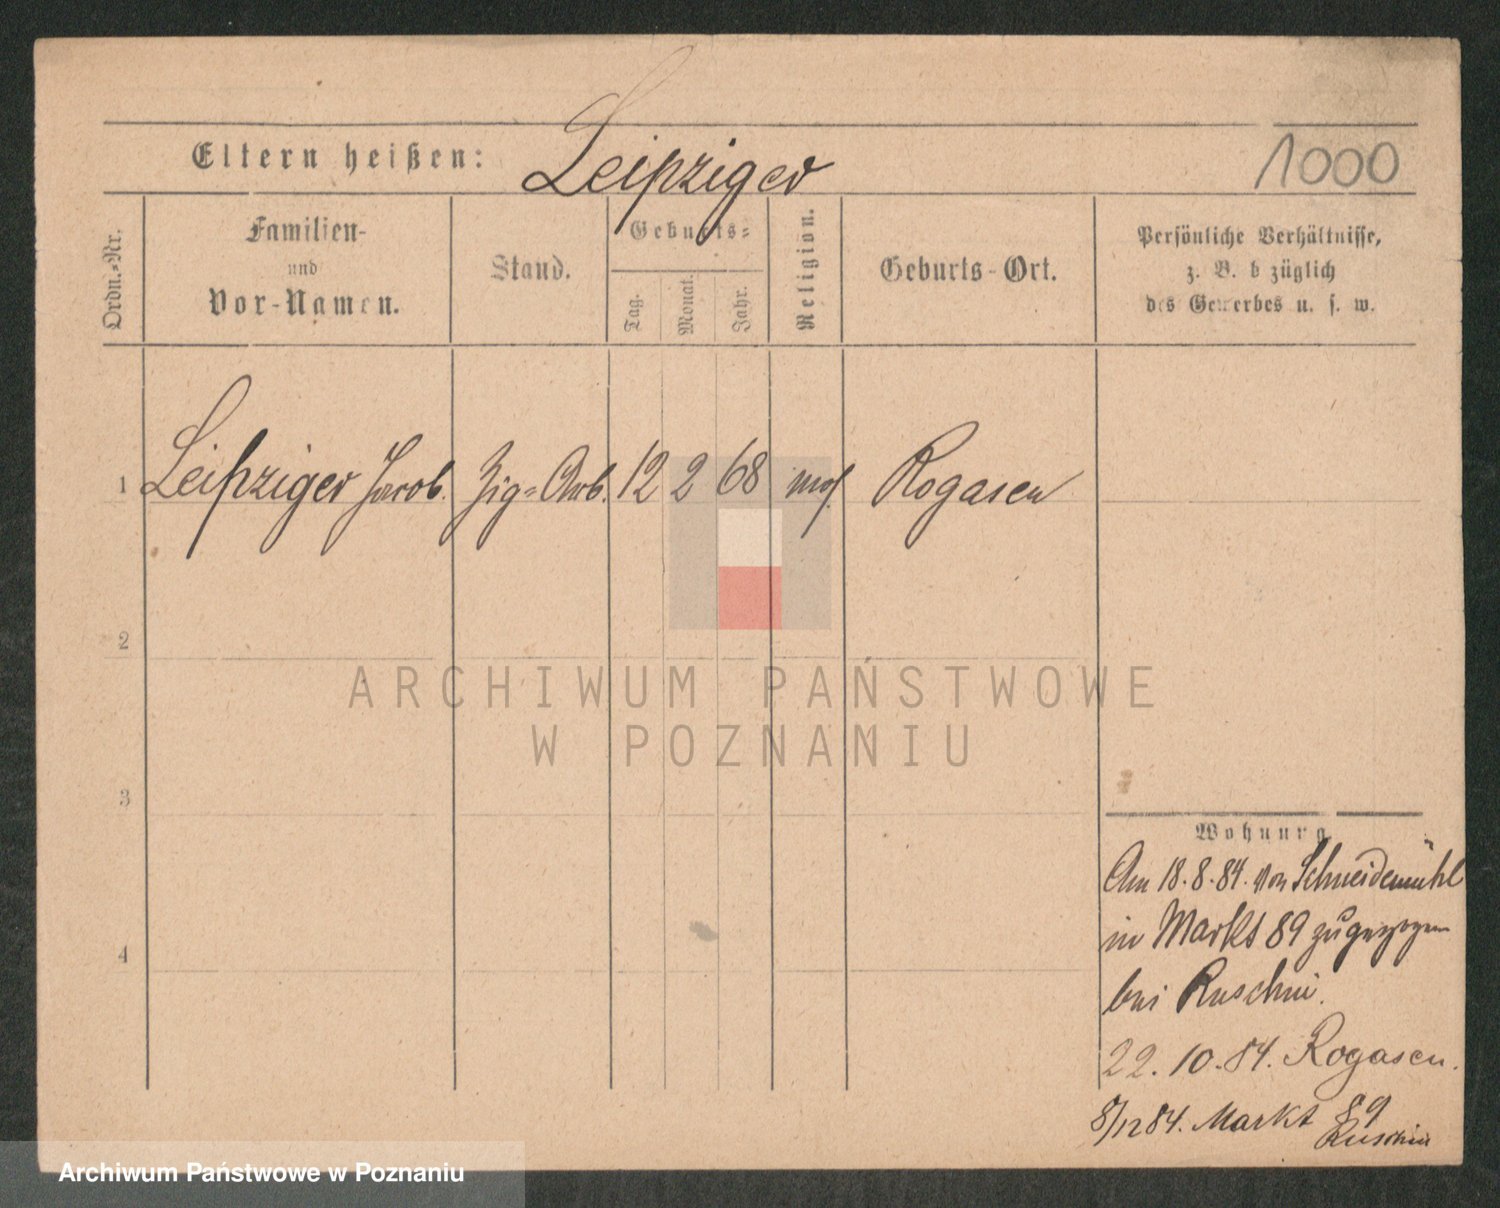 Eltern heißen: Leipziger 1000
Ordn.-Nr.
Familien-
und
Vor-Namen.
Stand.
Geburts-
Tag.
Monat.
Jahr.
Religion.
Geburts-Ort.
Persönliche Verhältnisse,
z. B. b züglich
des Gewerbes u. s. w.
1 Leipziger Jacob. Zig-Arb. 12 2 68 mos. Rogasen
2
3
4
Wohnung
Am 18.8.84. von Schneidemühl
in Markt 89 zugezogen
bei Ruschin.
22.10.84. Rogasen.
8/12 84. Markt 89
Ruschin
ARCHIWUM PAŃSTWOWE
W POZNANIU
Archiwum Państwowe w Poznaniu